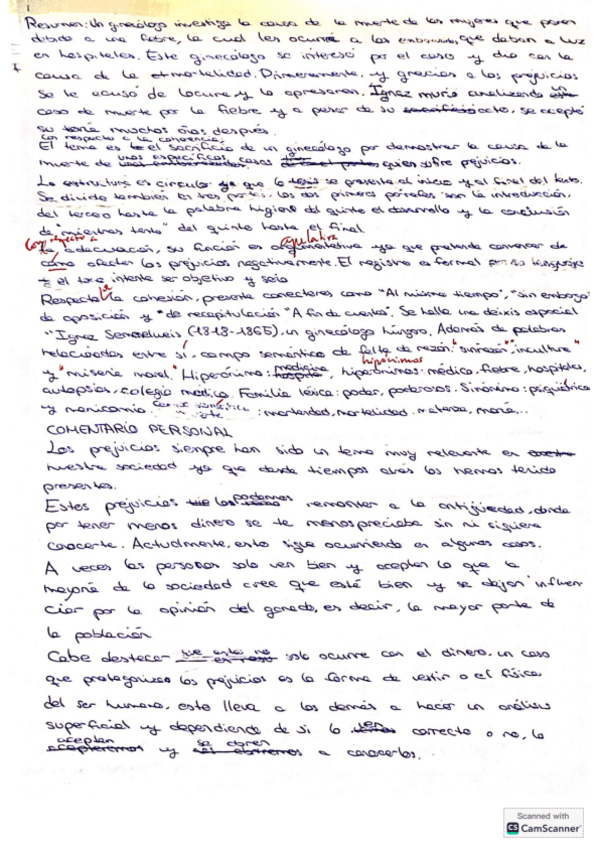 Resumen: Un ginecólogo investiga la causa de la muerte de las mujeres que paren
debido a una fiebre, la cual les ocurre a las embarazadas, que daban a luz
en hospitales. Este ginecólogo se interesó por el caso y dio con la
causa de la mortalidad. Primeramente, y gracias a los prejuicios
se le acusó de locura y lo apresaron. Ignaz murió analizando un
caso de muerte por la fiebre y a pesar de su acto, se aceptó
su teoría muchos años después.
Con respecto a la coherencia,
El tema es el sacrificio de un ginecólogo por demostrar la causa de la
muerte de unos específicos casos quien sufre prejuicios.
La estructura es circular ya que la tesis se presenta al inicio y al final del texto.
Se divide también en tres partes, los dos primeros párrafos son la introducción,
del tercero hasta la palabra higiene del quinto el desarrollo y la conclusión
de "mientras tanto" del quinto hasta el final.
Con respecto a
la adecuación, su función es argumentativa ya que pretende convencer de
apelativa
cómo afectan los prejuicios negativamente. El registro es formal por su lenguaje
y el intente ser objetivo y serio
Respecto a la cohesión, presenta conectores como "Al mismo tiempo", "sin embargo"
de oposición y de recapitulación "A fin de cuentas". Se halla una deixis espacial
"Ignaz Semmelweis (1818-1865), un ginecólogo húngaro. Además de palabras
relacionadas entre sí, campo semántico de falta de razón: "sinrazón", "incultura"
y "miseria moral." Hiperónimo: medicina, hipónimos: médico, fiebre, hospitales,
hipónimos
autopsias, colegio médico. Familia léxica: poder, poderosos. Sinónimo: psiquiátrico
y manicomio. : mortandad, mortalidad, matanza, moría...
COMENTARIO PERSONAL
Los prejuicios siempre han sido un tema muy relevante en
nuestra sociedad ya que desde tiempos atrás los hemos tenido
presentes.
Estos prejuicios los podemos remontar a la antigüedad, donde
por tener menos dinero se te menospreciaba sin ni siquiera
conocerte. Actualmente, esto sigue ocurriendo en algunos casos.
A veces las personas solo ven bien y aceptan lo que la
mayoría de la sociedad cree que está bien y se dejan influen
ciar por la opinión del ganado, es decir, la mayor parte de
la población
Cabe destacar que esto no solo ocurre con el dinero, un caso
que protagonizan los prejuicios es la forma de vestir o el físico
del ser humano, esto lleva a los demás a hacer un análisis
superficial y dependiendo de si lo ven correcto o no, lo
aceptan y se abren a conocerlos.
Scanned with
CS CamScanner